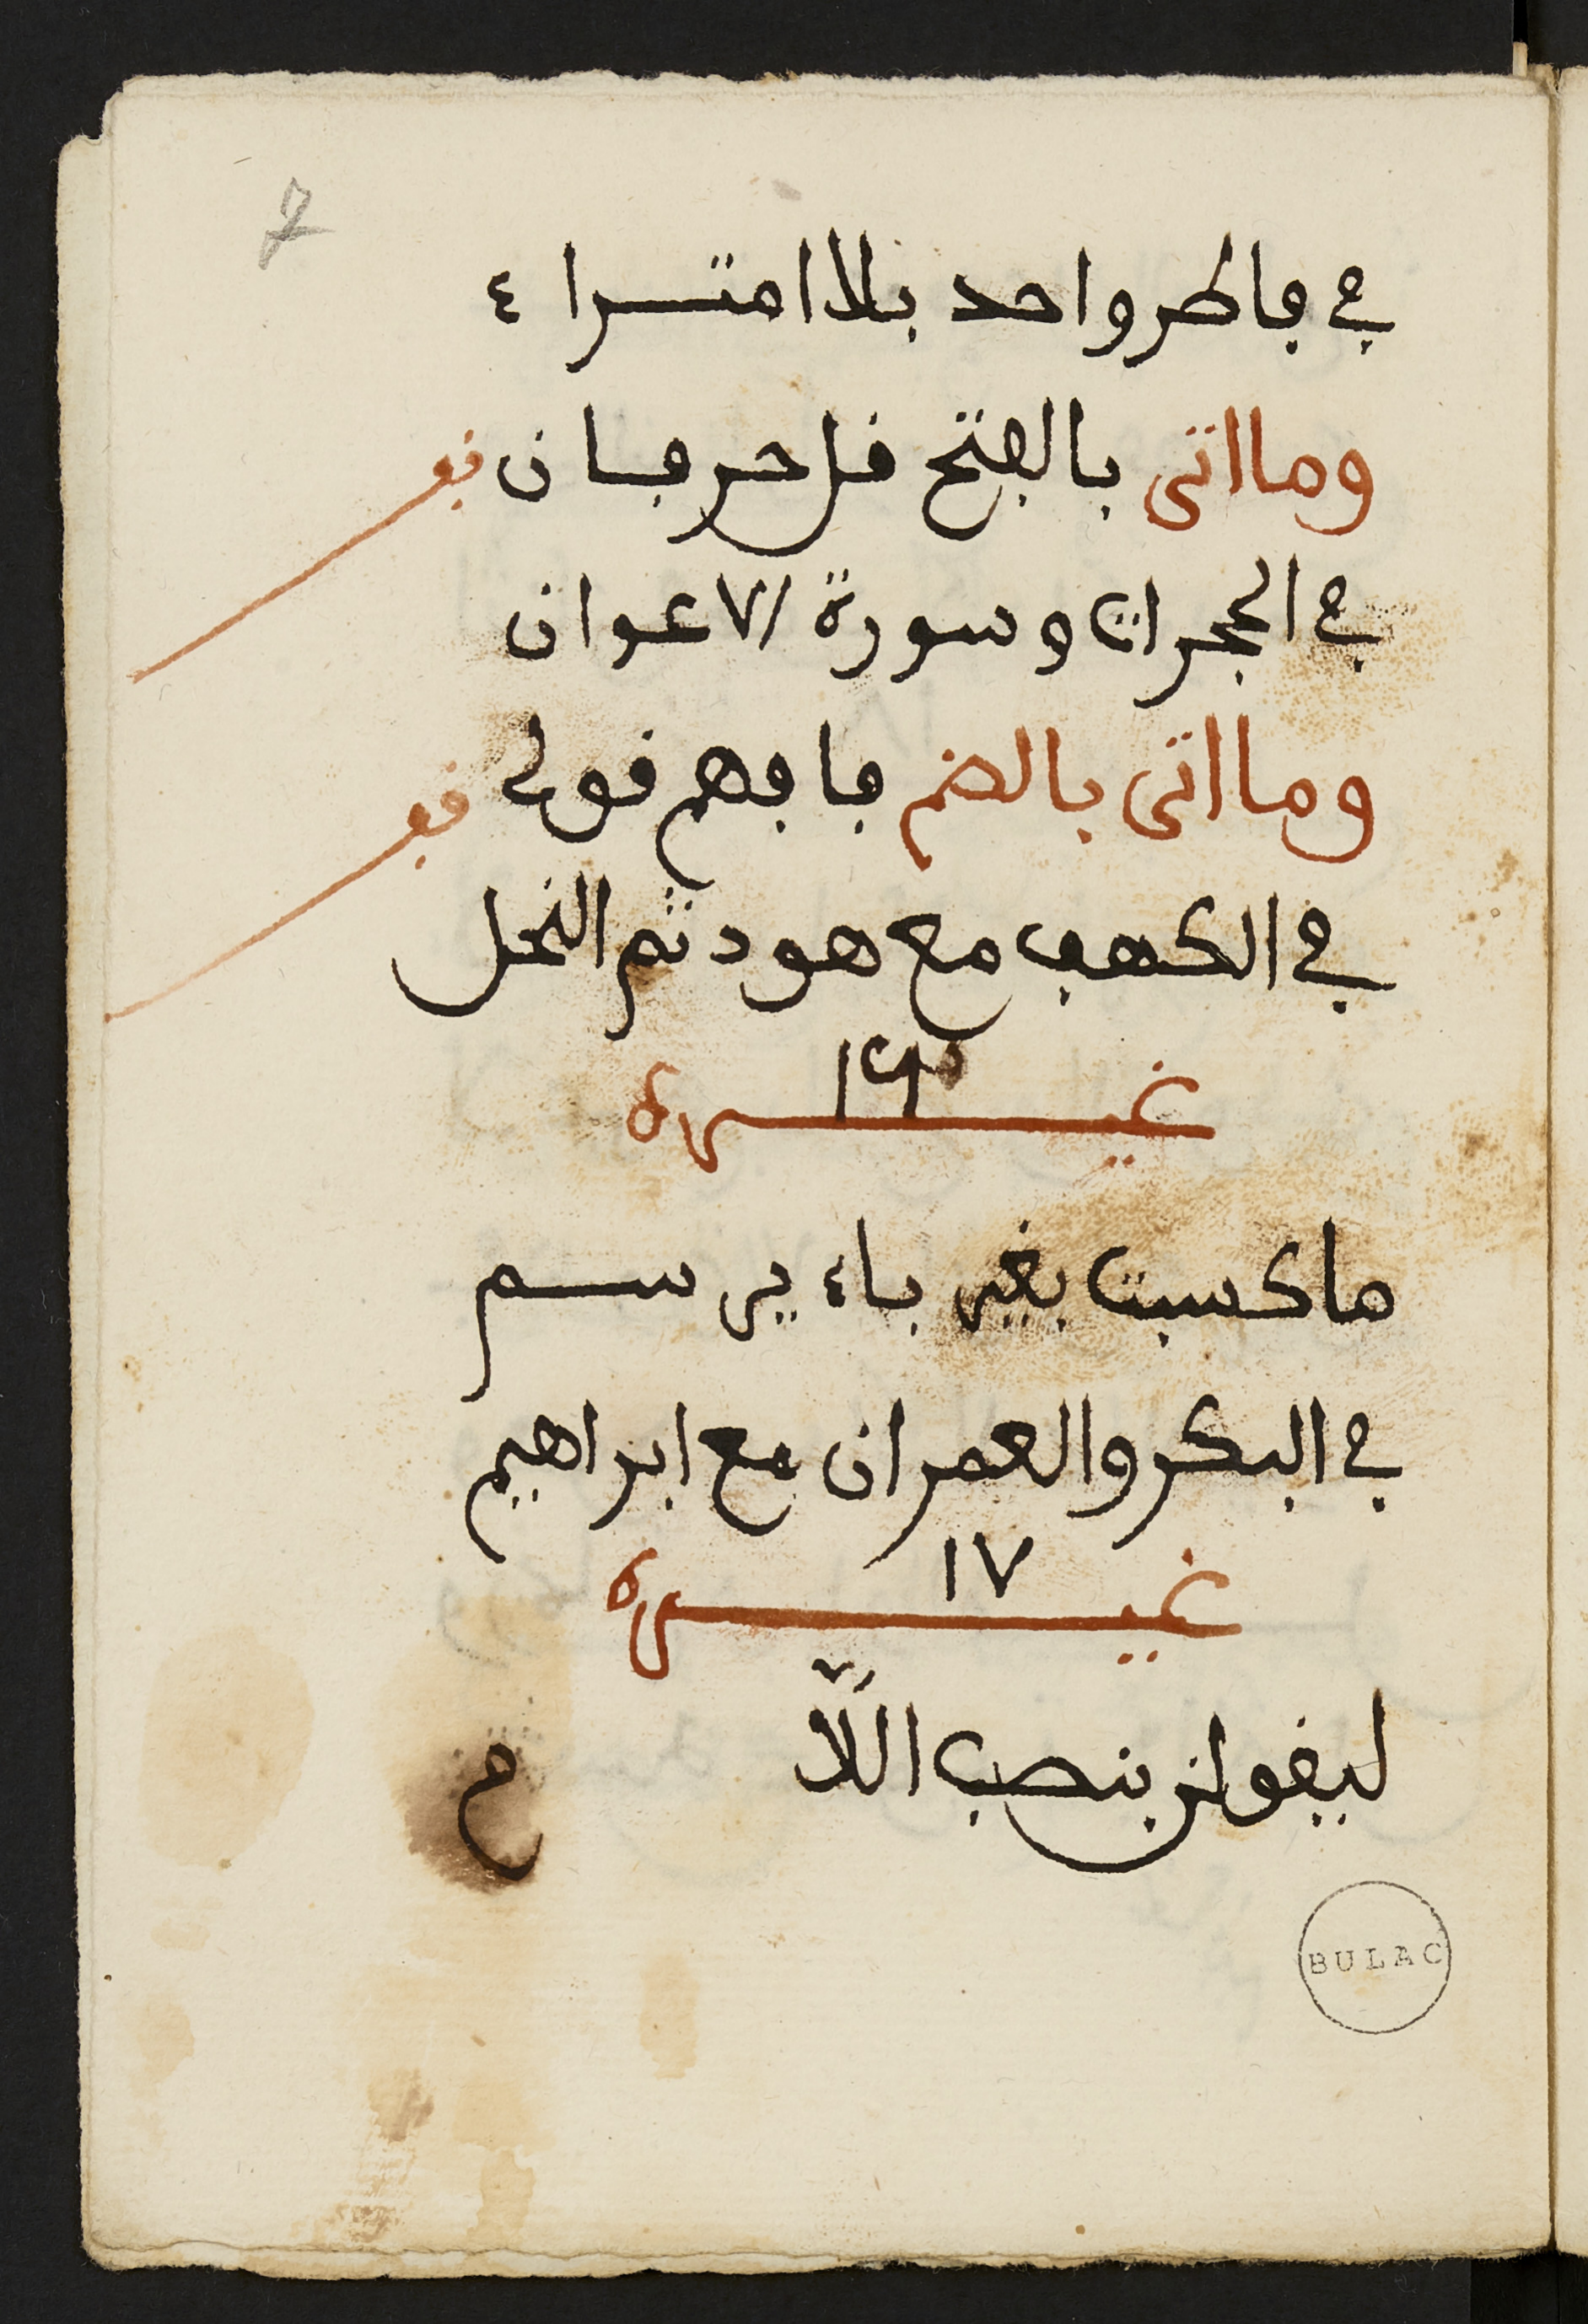 7
في فاطر واحد بلا امتراء
وما اتى بالفتح قل حرفان قو
في الحجرات وسورة الاعوان
وما اتى بالضم فافهم قولي قو
في الكهف مع هود ثم النحل
١٦
غيره
ما كسبت بغير باء يرسم
في البكر والعمران مع ابراهيم
١٧
غيره
ليقولن بنصب اللا
م
BULAC